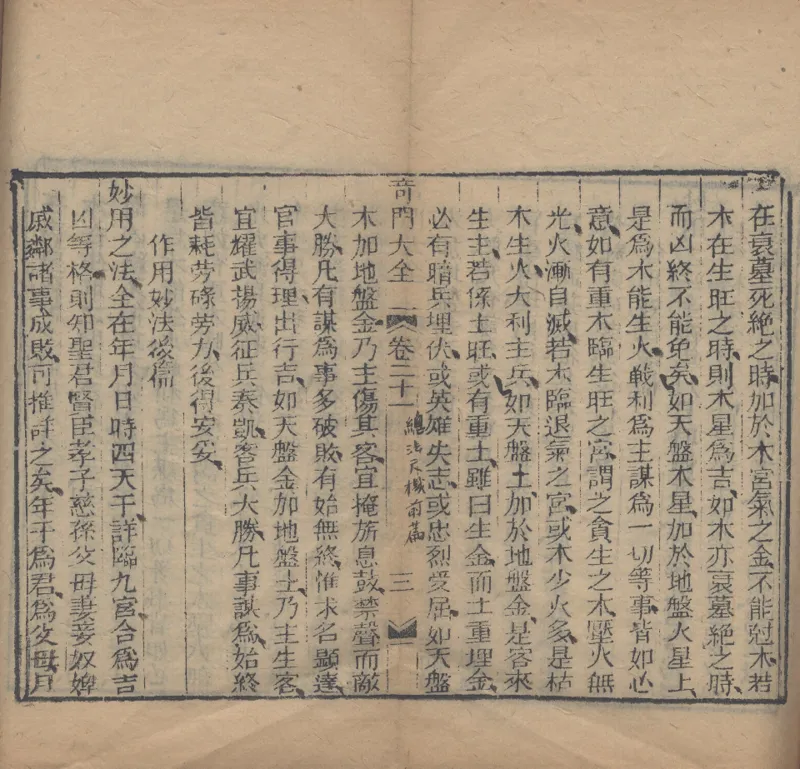 在衰墓死絶之時加於木宮氣之金不能尅木若
木在生旺之時則木星爲吉如木亦衰墓絶之時
而凶終不能免矣如天盤木星加於地盤火星上
是爲木能生火戦利爲主謀爲一切等事皆如必
意如有重木臨生旺之宮謂之貪生之木壓火無
光火漸自滅若木臨退氣之宮或木少火多是枯
木生火大利主兵如天盤土加於地盤金是客來
生主若係土旺或有重土雖曰生金而土重埋金
必有暗兵埋伏或英雄失志或忠烈受屈如天盤
奇門大全 卷二十一 總法天機前篇 三
木加地盤金乃主傷其客宜掩旂息鼓禁聲而敵
大勝凡有謀爲事多破敗有始無終惟求名顯達
官事得理出行吉如天盤金加地盤土乃主生客
宜耀武揚威征兵奏凱客兵大勝凡事謀爲始終
皆耗劳碌劳力後得安妥
作用妙法後篇
妙用之法全在年月日時四天干詳臨九宮合爲吉
凶等格則知聖君賢臣孝子慈孫父母妻妾奴婢
戚鄰諸事成敗可推詳之矣年干爲君爲父母月